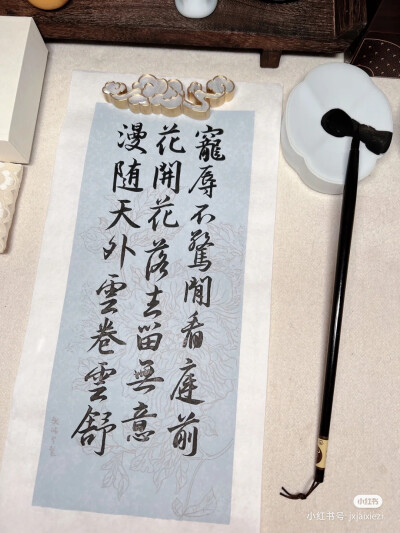 寵辱不驚閒看庭前
花開花落去留無意
漫随天外雲卷雲舒
小红书
小红书号